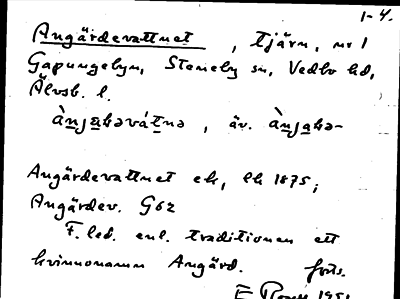 1-4.
Angärdevattnet, tjärn, nr 1
Gapungebyn, Steneby sn, Vedbo hd,
Älvsb. l.
ànjabəvátnə, äv. ànjabə-
Angärdevattnet ek, lk 1875;
Angärdev. G62
F. led. enl. traditionen ett
kvinnonamn Angärd. forts.
E 195